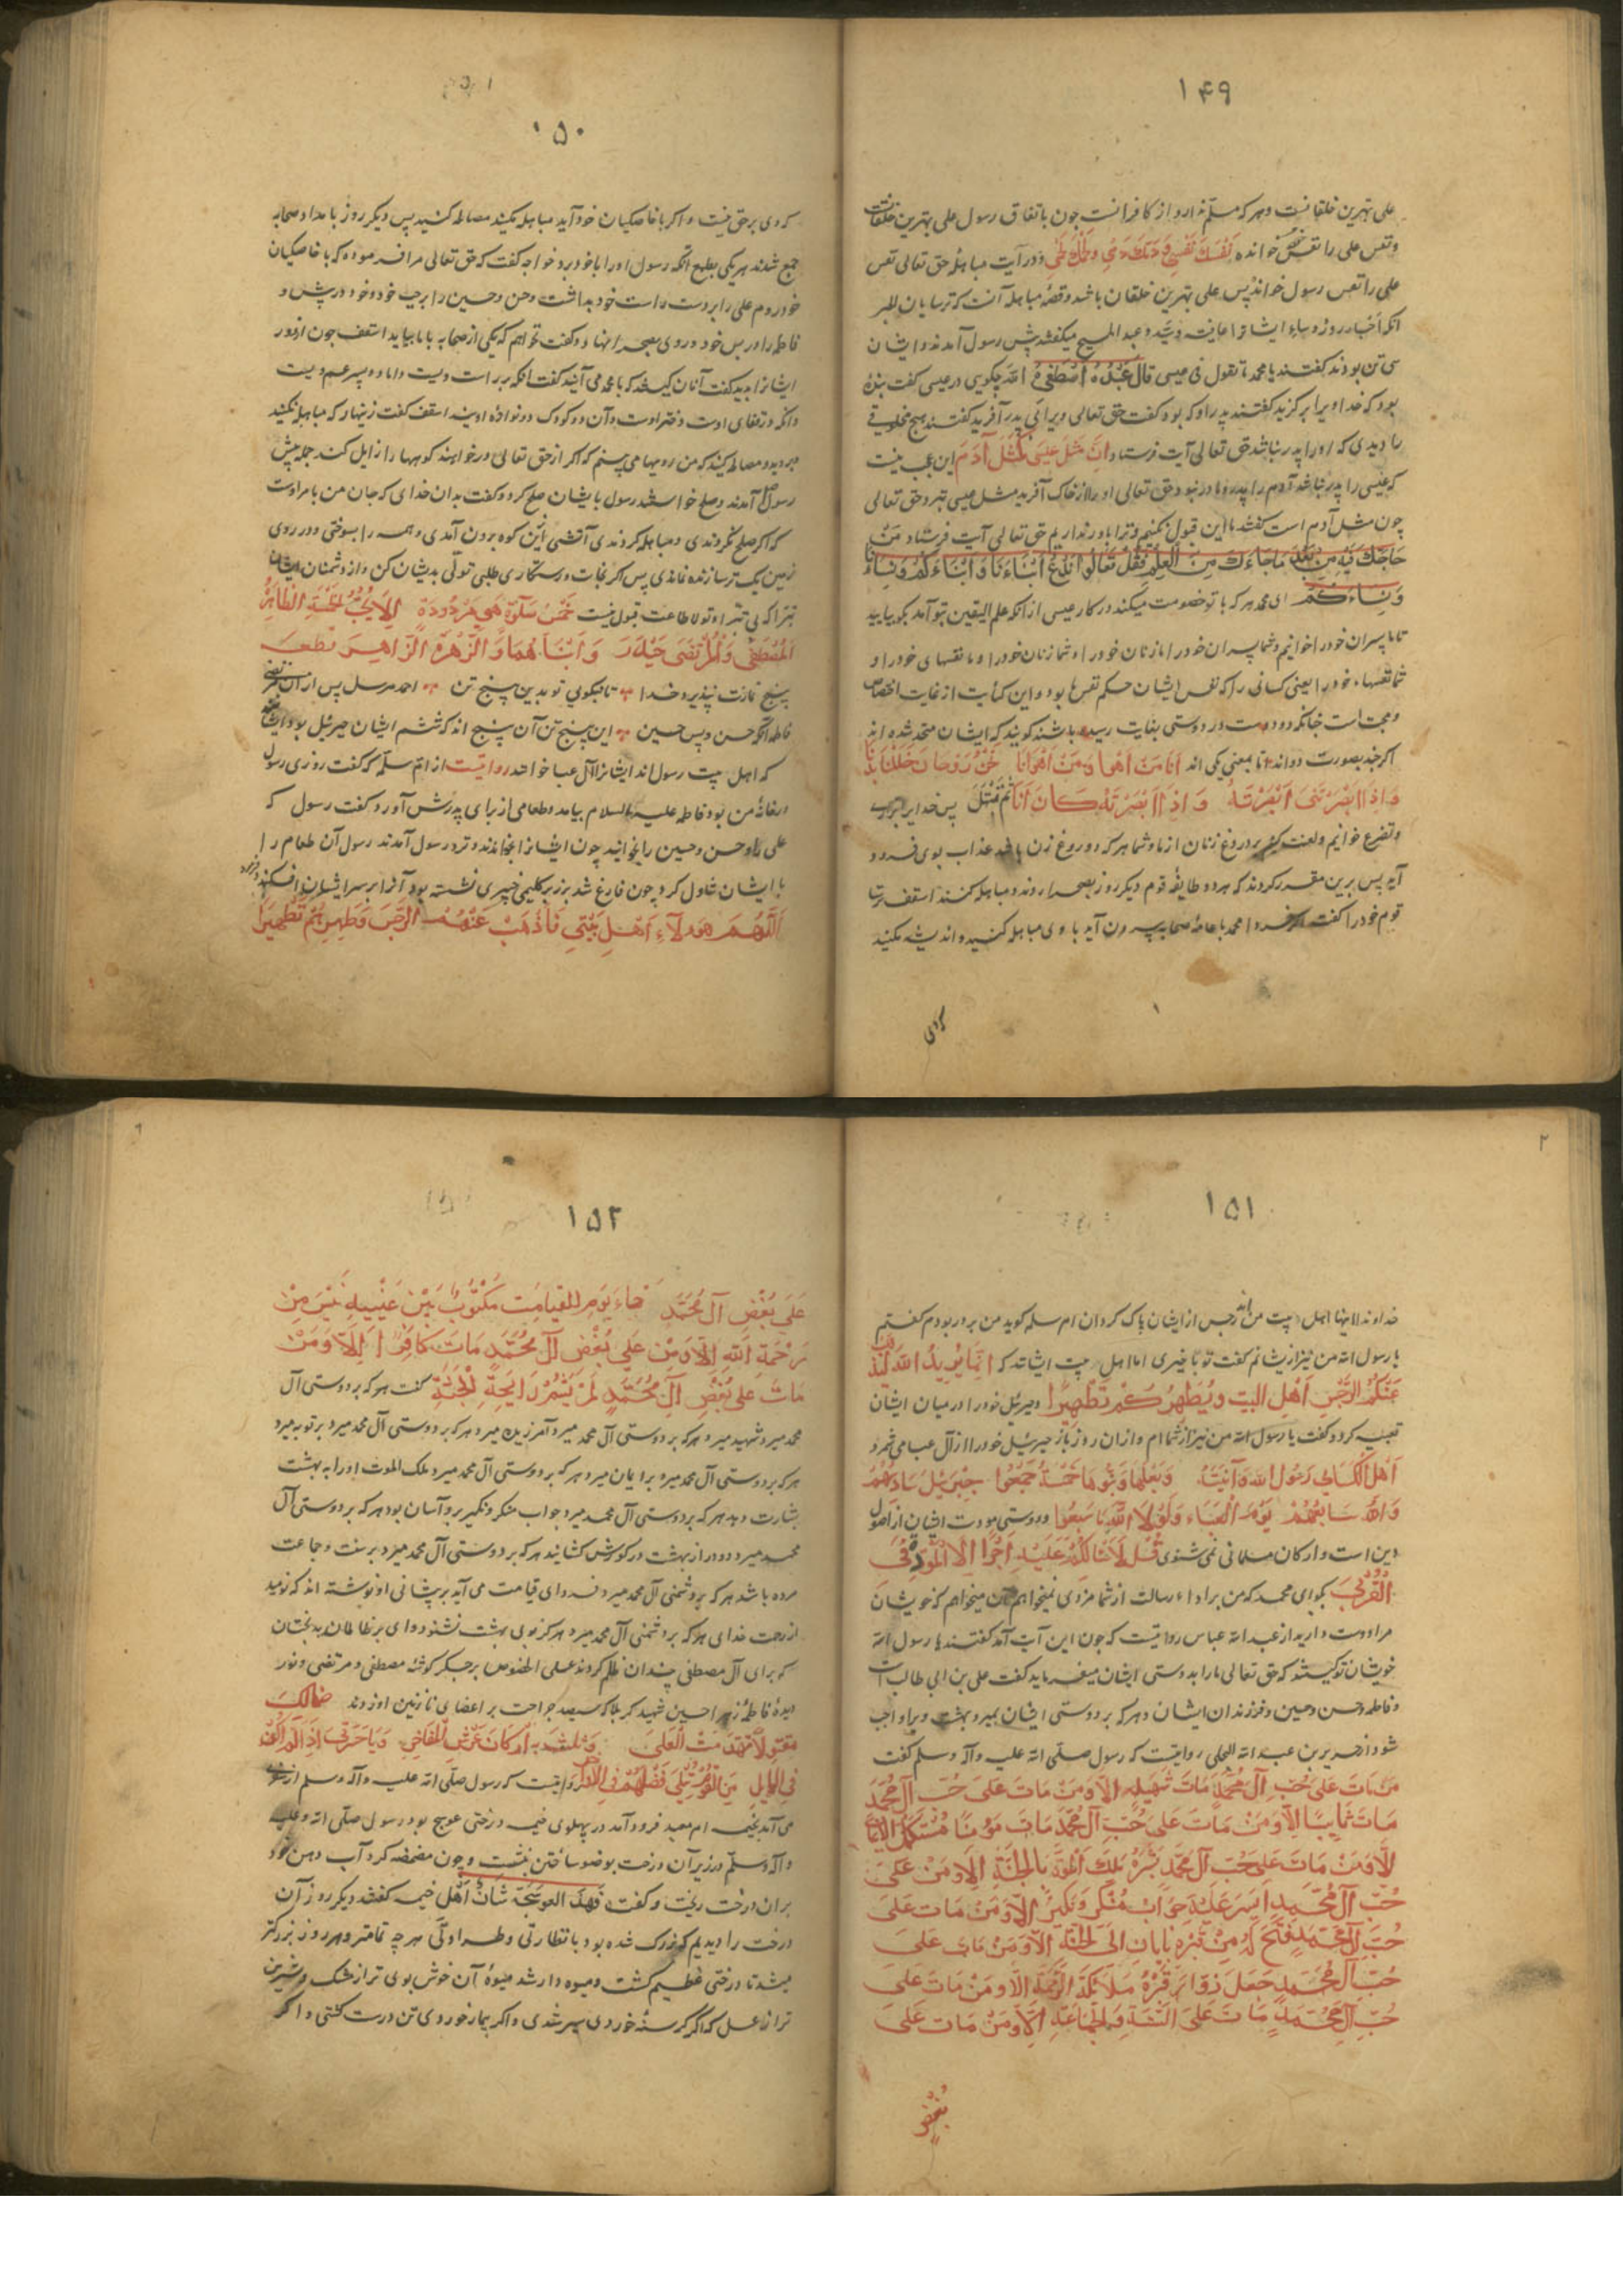 ۱۴۹
علی بهترین خلقانست و هر که مسلم ندارد از کافرانست چون باتفاق رسول علی بهترین خلقانست
و نفس علی را نفس خود خوانده نفسك نفسی و دمك دمی و لحمك لحمی و در آیت مباهله حق تعالی نفس
علی را نفس رسول خواند پس علی بهترین خلقان باشد و قصهٔ مباهله آنست که ترسایان
آنکه احبار روز و ایشانرا عاقب و سید و عبد المسیح میگفتند پیش رسول آمدند و ایشان
سی تن بودند گفتند یا محمد ما تقول فی عیسی قال عبد اصطفی الله چگویی در عیسی گفت بندهٔ
بود که خدا ویرا برگزید گفتند پدر او که بود گفت حق تعالی ویرا بی پدر آفرید گفتند هیچ مخلوقی
را دیدی که او را پدر نباشد حق تعالی آیت فرستاد ان مثل عیسی کمثل آدم این عجب نیست
که عیسی را پدر نباشد آدم را پدر و مادر نبود حق تعالی او را از خاک آفرید مثل عیسی نزد حق تعالی
چون مثل آدم است گفتند ما این قبول نکنیم و ترا باور نداریم حق تعالی آیت فرستاد فمن
حاجك فیه من بعد ما جاءك من العلم فقل تعالوا ندع ابناءنا و ابناءکم و نساءنا
و نساءکم ای محمد هر که با تو خصومت میکند در کار عیسی از آنکه علم الیقین بتو آمد بگو بیایید
تا ما پسران خود را خوانیم و شما پسران خود را ما زنان خود را و شما زنان خود را و ما نفسهای خود را و
شما نفسهاء خود را یعنی کسانی را که نفس ایشان حکم نفس ما بود و این کنایت از غایت اختصاص
و محبت است چنانکه دو دوست در دوستی بغایت رسیده باشند گویند که ایشان متحد شده اند
اگرچه بصورت دو اند اما بمعنی یکی اند انا من اهوی و من اهوی انا نحن روحان حللنا بدنا
و اذا ابصرتنی ابصرته و اذا ابصرته کان انا ثم نبتهل پس خدایرا بزاری
و تضرع خوانیم و لعنت کنیم بر دروغ زنان از ما و شما هر که دروغ زن باشد عذاب بوی فرود
آید پس برین مقرر کردند که هر دو طایفه قوم دیگر روز بصحرا روند و مباهله کنند اسقف ترسا
قوم خود را گفت اگر فردا محمد با عامهٔ صحابه بیرون آید با وی مباهله کنید و اندیشه مکنید
کردی
۱۵۰
که وی بر حق نیست و اگر با خاصگیان خود آید مباهله مکنید مصالحه کنید پس دیگر روز بامداد صحابه
جمع شدند هر یکی بطمع آنکه رسول او را با خود برد خواجه گفت که حق تعالی مرا فرموده که با خاصگیان
خود روم علی را بر دست راست خود بداشت و حسن و حسین را بر چپ خود و خود در پیش و
فاطمه را در پس خود و روی بصحرا نهاد و گفت نخواهم که یکی از صحابه با ما بیاید اسقف چون از دور
ایشانرا بدید گفت آنان کیستند که با محمد می آیند گفت آنکه بر راست ویست داماد و پسر عم ویست
و آنکه در قفای اوست دختر اوست و آن دو کودک دو نوادهٔ اویند اسقف گفت زینهار که مباهله نکنید
و بروید و مصالحه کنید که من رویها می بینم که اگر از حق تعالی درخواهند کوهها را زایل کند جمله پیش
رسول آمدند و صلح خواستند رسول با ایشان صلح کرد و گفت بدان خدای که جان من بامر اوست
که اگر صلح نکردندی و مباهله کردندی آتشی ازین کوه برون آمدی و همه را بسوختی و در روی
زمین یک ترسا زنده نماندی پس اگر نجات و رستگاری طلبی تولی بدیشان کن و از دشمنان ایشان
تبرا که بی تبرا و تولا طاعت قبول نیست خمس صلوة هی مردودة الا بحب الخمسة الطاهرة
المصطفی و المرتضی حیدر و ابناهما و الزهرة الزاهرة قطعه
پنج نمازت نپذیرد خدا تا نبگویی تو بدین پنج تن احمد مرسل پس از آن مرتضی
فاطمه آنگه حسن و پس حسین این پنج تن آن پنج اند که ششم ایشان جبرئیل بود و ایشانند
که اهل بیت رسول اند ایشانرا آل عبا خوانند روایتست از ام سلمه که گفت روزی رسول
در خانهٔ من بود فاطمه علیه السلام بیامد و طعامی از برای پدرش آورد گفت رسول که
علی را و حسن و حسین را بخوانید چون ایشانرا بخواندند و نزد رسول آمدند رسول آن طعام را
با ایشان تناول کرد چون فارغ شد بر زبر گلیمی خیبری نشسته بود آنرا بر سر ایشان افکند
اللهم هؤلاء اهل بیتی فاذهب عنهم الرجس و طهرهم تطهیرا
۱۵۱
خداوندا اینها اهل بیت من اند رجس از ایشان پاک گردان ام سلمه گوید من بر در بودم گفتم
یا رسول الله من نیز از یشانم گفت تو با خیری اما اهل بیت ایشانند که انما یرید الله لیذهب
عنکم الرجس اهل البیت و یطهرکم تطهیرا و جبرئیل خود را در میان ایشان
تعبیه کرد و گفت یا رسول الله من نیز از شما ام و از ان روز باز جبرئیل خود را از آل عبا می شمرد
اهل الکساء رسول الله و ابنته و بعلها و بنوها خمسة جمعوا جبریل سادسهم
و الله سابعهم یوم العباء و لولا الله ما سبعوا و دوستی و مودت ایشان از اصول
دین است و ارکان مسلمانی نمی شنوی قل لا اسألکم علیه اجرا الا المودة فی
القربی بگو ای محمد که من بر اداء رسالت از شما مزدی نمیخواهم آن میخواهم که خویشان
مرا دوست دارید از عبد الله عباس روایتست که چون این آیت آمد گفتند یا رسول الله
خویشان تو کیستند که حق تعالی ما را بدوستی ایشان میفرماید گفت علی بن ابی طالب است
و فاطمه و حسن و حسین و فرزندان ایشان و هر که بر دوستی ایشان بمیرد بهشت ویرا واجب
شود از جریر بن عبد الله البجلی روایتست که رسول صلی الله علیه و آله و سلم گفت
من مات علی حب آل محمد مات شهیدا الا و من مات علی حب آل محمد
مات تایبا الا و من مات علی حب آل محمد مات مؤمنا مستکمل الایمان
الا و من مات علی حب آل محمد بشره ملك الموت بالجنة الا و من مات علی
حب آل محمد ایسر علیه جواب منکر و نکیر الا و من مات علی
حب آل محمد فتح له من قبره بابان الی الجنة الا و من مات علی
حب آل محمد جعل زوار قبره ملائکة الرحمة الا و من مات علی
حب آل محمد مات علی السنة و الجماعة الا و من مات علی
بغض
۱۵۲
علی بغض آل محمد جاء یوم القیامت مکتوب بین عینیه ایس من
رحمة الله الا و من علی بغض آل محمد مات کافرا الا و من
مات علی بغض آل محمد لم یشم رایحة الجنة گفت هر که بر دوستی آل
محمد میرد شهید میرد و هر که بر دوستی آل محمد میرد آمرزیده میرد و هر که بر دوستی آل محمد میرد بر توبه میرد
هر که بر دوستی آل محمد میرد بر ایمان میرد هر که بر دوستی آل محمد میرد ملک الموت او را به بهشت
بشارت دهد هر که بر دوستی آل محمد میرد جواب منکر و نکیر برو آسان بود هر که بر دوستی آل
محمد میرد دو در از بهشت در گورش گشایند هر که بر دوستی آل محمد میرد بر سنت و جماعت
مرده باشد هر که بر دشمنی آل محمد میرد فردای قیامت می آید بر پیشانی او نوشته اند که نومید
از رحمت خدای هر که بر دشمنی آل محمد میرد هرگز بوی بهشت نشنود وای بر ظالمان بدبختان
که برای آل مصطفی چندان ظلم کردند علی الخصوص بر جگر گوشهٔ مصطفی و مرتضی و نور
دیدهٔ فاطمهٔ زهرا حسین شهید کربلا که سیصد جراحت بر اعضای نازنین او زدند
روایتست که رسول صلی الله علیه و آله و سلم از
می آمد بخیمه ام معبد فرود آمد در پهلوی خیمه درختی عوسج بود رسول صلی الله علیه
و آله و سلم در زیر آن درخت بوضو ساختن بنشست و چون مضمضه کرد آب دهن خود
بران درخت ریخت و گفت فهذه العوسجة شان اهل خیمه گفتند دیگر روز آن
درخت را دیدیم که بزرک شده بود با نظارتی و طراوتی هر چه تمامتر و هر روز بزرگتر
میشد تا درختی عظیم گشت و میوه دار شد میوهٔ آن خوش بوی تر از مشک و شیرین
تر از عسل که اگر گرسنهٔ خوردی سیر شدی و اگر بیمار خوردی تن درست گشتی و اگر